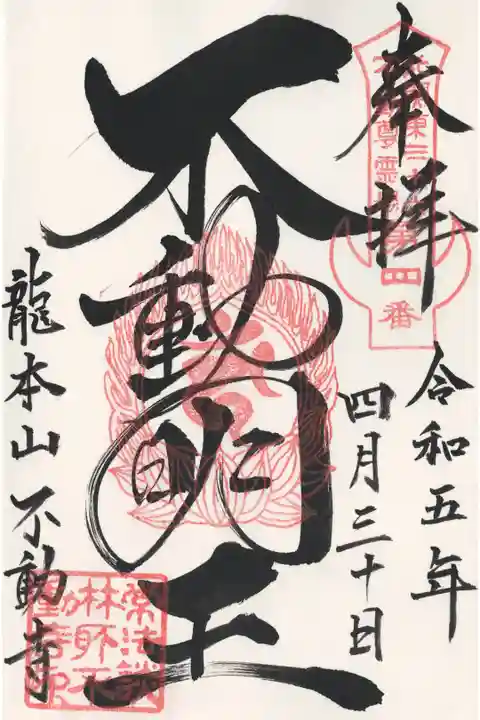 奉拝
令和五年
四月三十日
不動明王
龍本山不動寺
第四番